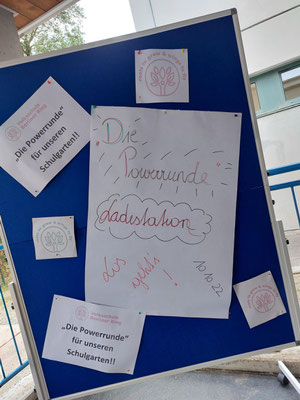 „Die Powerrunde“
für unseren
Schulgarten!!
Die
Powerrunde
Ladestation
Los
geht's
!
10.10.22
„Die Powerrunde“
für unseren
Schulgarten!!